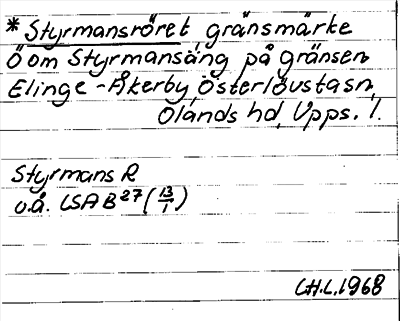 *Styrmansröret, gränsmärke
Ö om Styrmansäng på gränsen
Elinge-Åkerby, Österlövsta sn,
Olands hd, Upps. l.
Styrmans R
u.å. LSA B 27 (13/1)
C.H.L. 1968